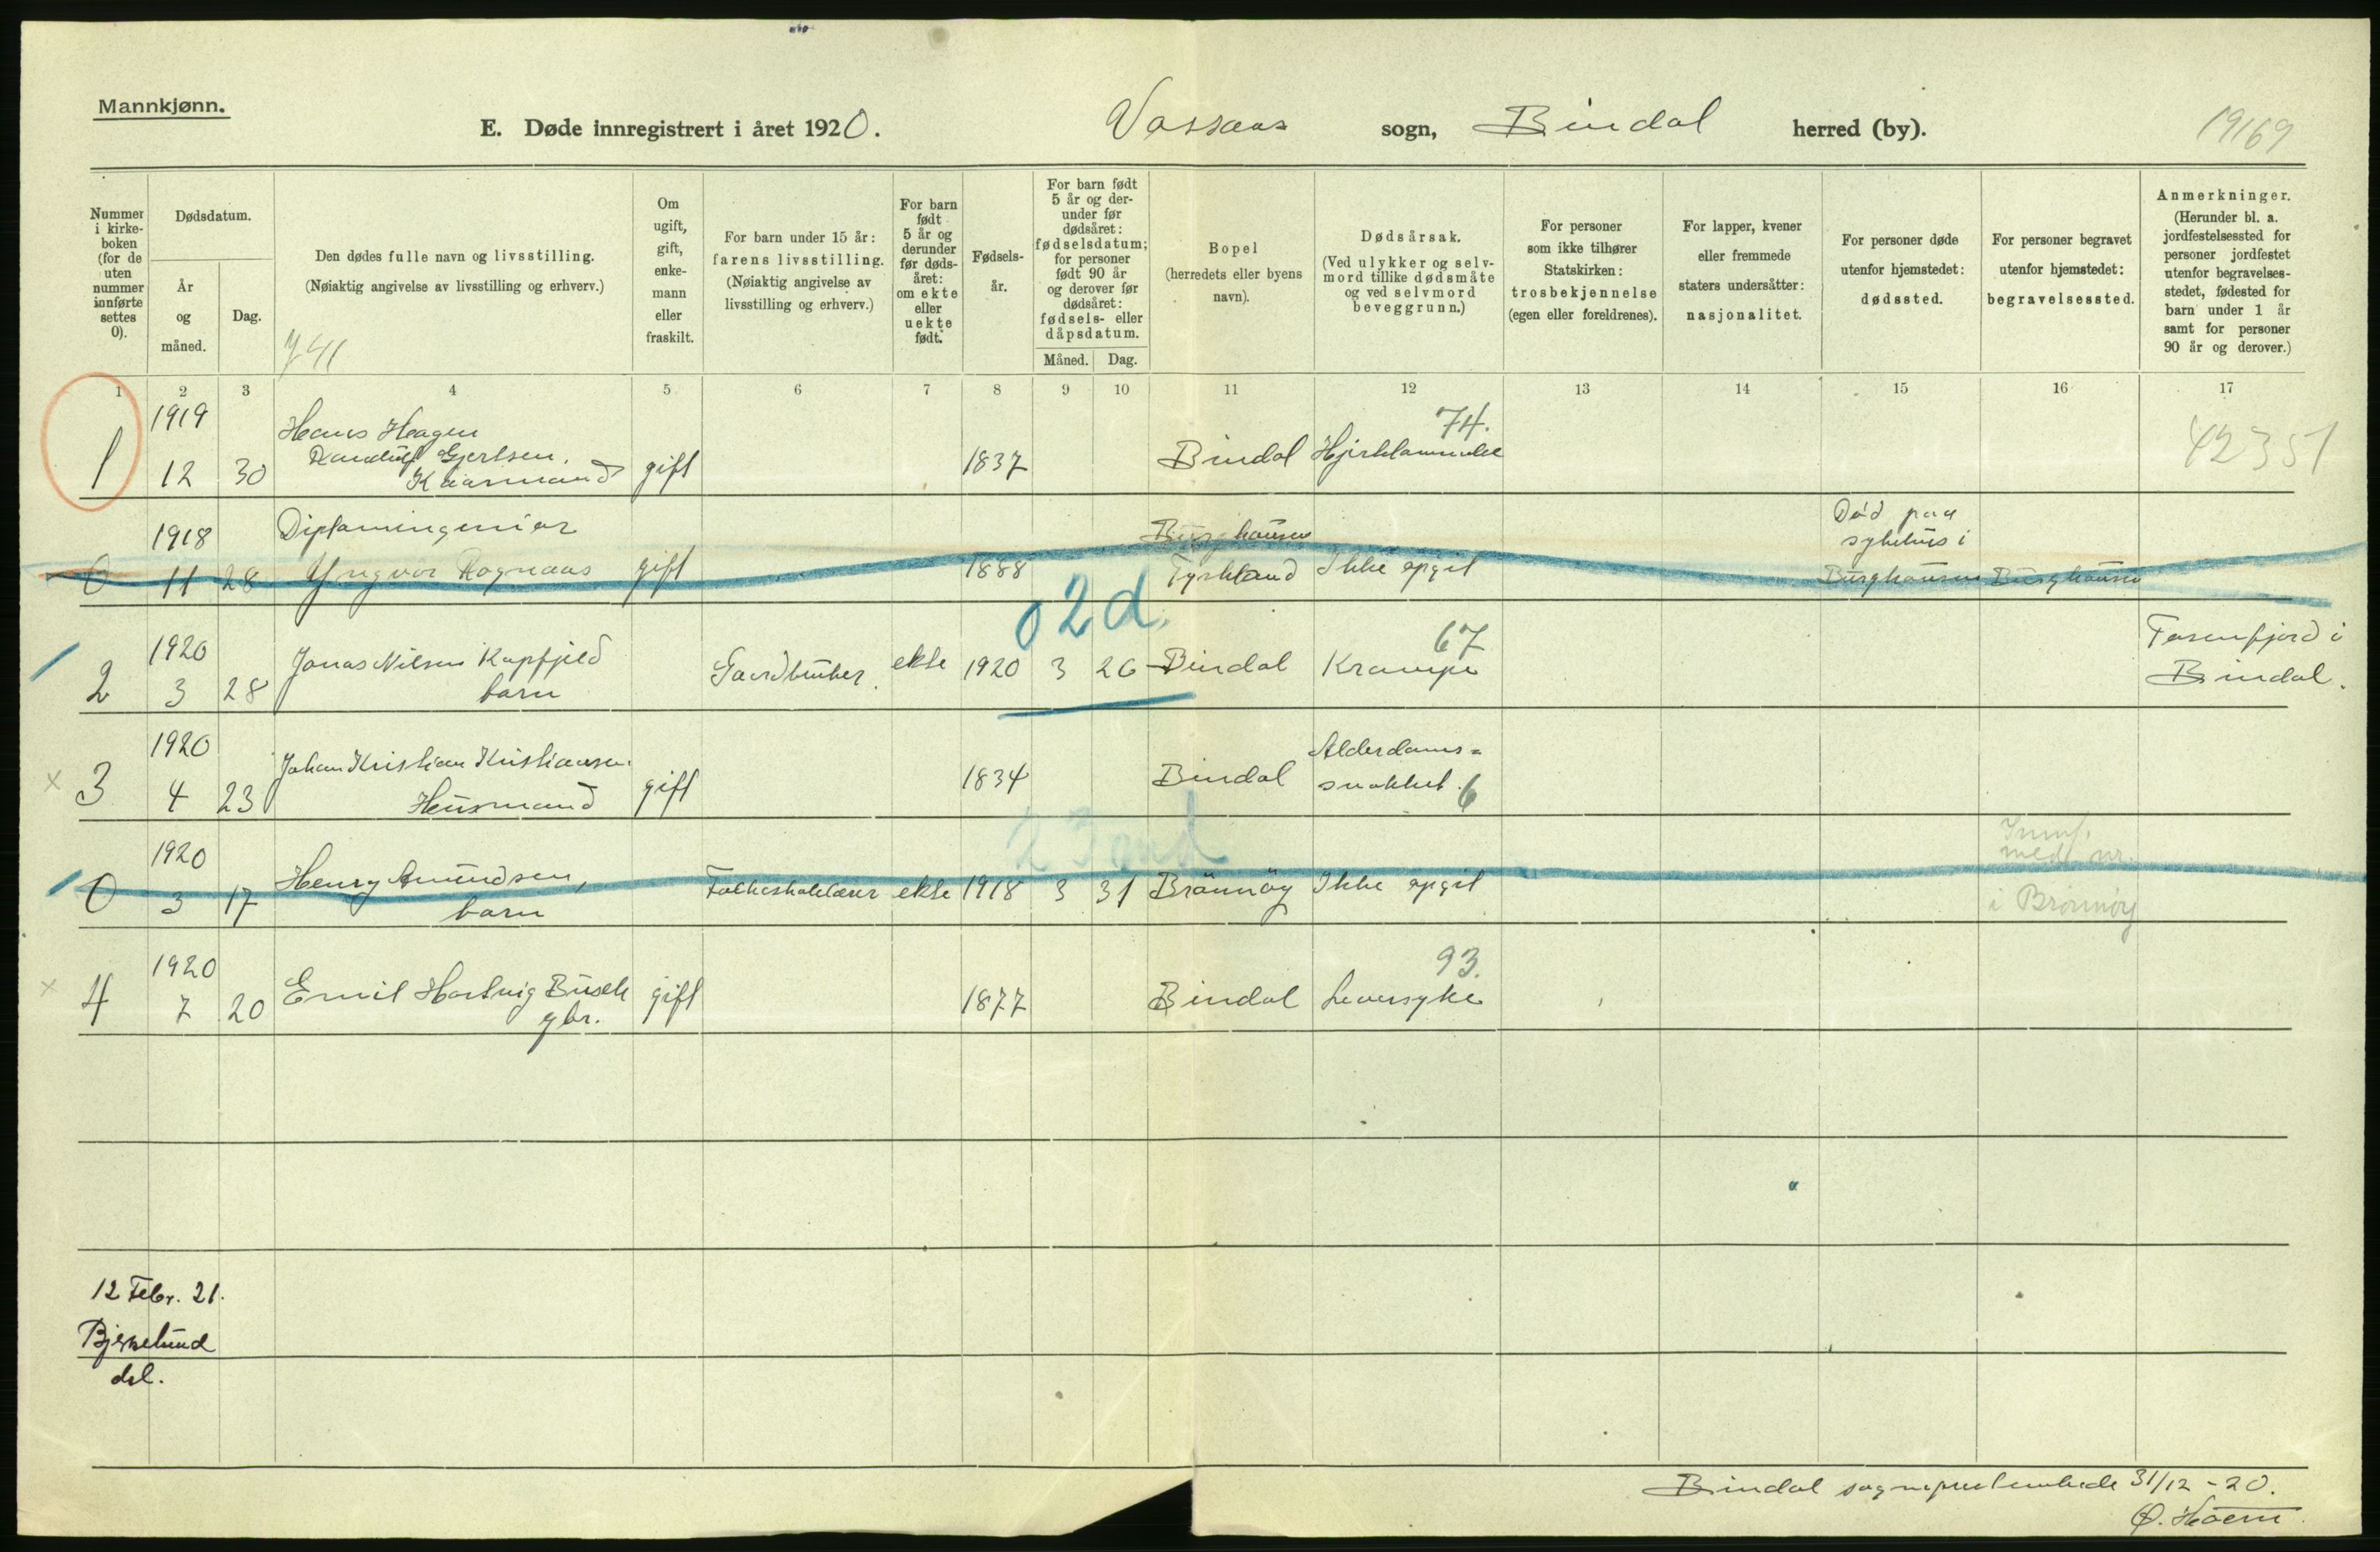 Mannkjønn.
E. Døde innregistrert i året 1920. Vassaas sogn, Bindal herred (by).
19169
Nummer i kirke-boken (for de uten nummer innførte settes 0).
Dødsdatum.
År og måned.
Dag.
Den dødes fulle navn og livsstilling.
(Nøiaktig angivelse av livsstilling og erhverv.)
Om ugift, gift, enke-mann eller fraskilt.
For barn under 15 år: farens livsstilling.
(Nøiaktig angivelse av livsstilling og erhverv.)
For barn født 5 år og derunder før døds-året: om ekte eller uekte født.
Fødsels-år.
For barn født 5 år og der-under før dødsåret: fødselsdatum; for personer født 90 år og derover før dødsåret: fødsels- eller dåpsdatum.
Måned. Dag.
Bopel
(herredets eller byens navn).
Dødsårsak.
(Ved ulykker og selv-mord tillike dødsmåte og ved selvmord beveggrunn.)
For personer som ikke tilhører Statskirken: trosbekjennelse (egen eller foreldrenes).
For lapper, kvener eller fremmede staters undersåtter: nasjonalitet.
For personer døde utenfor hjemstedet: dødssted.
For personer begravet utenfor hjemstedet: begravelsessted.
Anmerkninger.
(Herunder bl. a. jordfestelsessted for personer jordfestet utenfor begravelses-stedet, fødested for barn under 1 år samt for personer 90 år og derover.)
1 2 3 4 5 6 7 8 9 10 11 12 13 14 15 16 17
1919 Hans Hagen 74.
Gjertsen,
1 12 30 Kaarmand gift 1837 Bindal 42351
1918 Diplomingeniør Burghausen Død paa sykehus i
0 11 28 Yngvar Ragnaas gift 1888 Tyskland Ikke opgit Burghausen Burghausen
02d.
1920 Jonas Nilsen Kapfjeld 67 Tosenfjord i
2 3 28 barn Gaardbruker ekte 1920 3 26 Bindal Krampe Bindal.
1920 Johan Kristian Kristiansen Alderdoms=
3 4 23 Husmand gift 1834 Bindal svakhet. 6
1920 Henry Amundsen, Innf. med nr.
0 3 17 barn Folkeskolelærer ekte 1918 3 31 Brønnøy Ikke opgit i Brønnøy
1920 93.
4 7 20 Emil Hartvig Busch gbr. gift 1877 Bindal Leversyke
12 Febr. 21.
Bjerkelund
del.
Bindal sogneprestembede 31/12 - 20.
O. Høem.